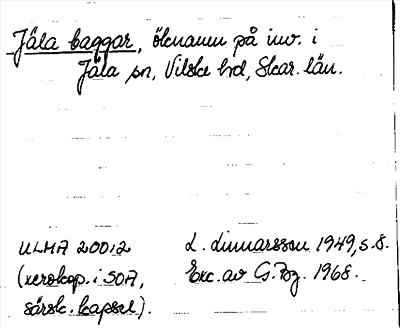 Jäla baggar, öknamn på inv. i
Jäla sn, Vilske hd, Skar. län.
ULMA 20012
(xerokop. i SOA,
särsk. kapsel).
L. Linnarsson 1949, s. 8.
Exc. av G. Bg. 1968.